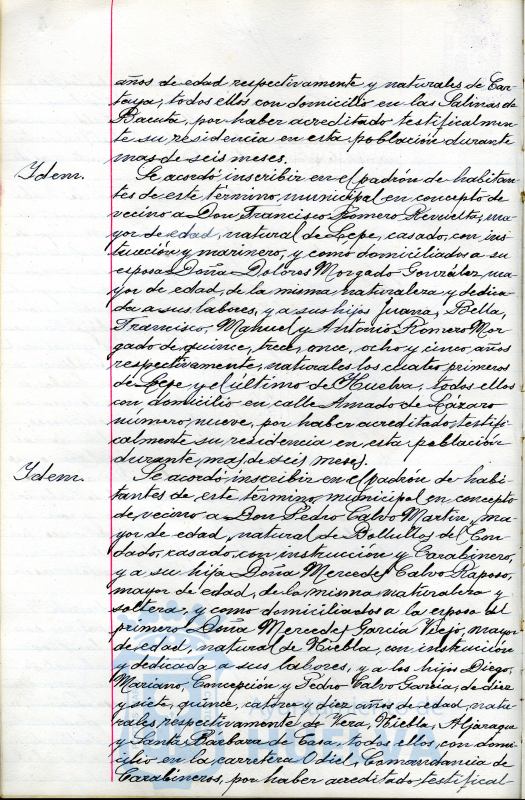 años de edad respectivamente y naturales de Car-
taya; todos ellos con domicilio en las Salinas de
Bacuta, por haber acreditado testificalmen-
te su residencia en esta población durante
mas de seis meses.
Idem.
Se acordó inscribir en el padrón de habitan-
tes de este término municipal en concepto de
vecino a Don Francisco Romero Revuelta, ma-
yor de edad, natural de Lepe, casado, con ins-
trucción y marinero, y como domiciliados a su
esposa Doña Dolores Morgado González, ma-
yor de edad, de la misma naturaleza y dedica-
da a sus labores, y a sus hijos Juana, Bella,
Francisco, Manuel y Antonio Romero Mor-
gado de quince, trece, once, ocho y cinco años
respectivamente, naturales los cuatro primeros
de Lepe y el último de Huelva; todos ellos
con domicilio en calle Amado de Lázaro
número nueve, por haber acreditado testifi-
calmente su residencia en esta población
durante mas de seis meses.
Idem.
Se acordó inscribir en el padrón de habi-
tantes de este término municipal en concepto
de vecino a Don Pedro Calvo Martín, ma-
yor de edad, natural de Bollullos del Con-
dado, casado, con instrucción y Carabinero,
y a su hija Doña Mercedes Calvo Raposo,
mayor de edad, de la misma naturaleza y
soltera, y como domiciliados a la esposa del
primero Doña Mercedes García Viejo, mayor
de edad, natural de Niebla, con instrucción
y dedicada a sus labores, y a los hijos Diego,
Mariano, Concepción y Pedro Calvo García, de diez
y siete, quince, catorce y diez años de edad, natu-
rales respectivamente de Vera, Niebla, Aljaraque
y Santa Bárbara de Casa, todos ellos con domi-
cilio en la carretera Odiel, Comandancia de
Carabineros, por haber acreditado testifical-
HUELVA